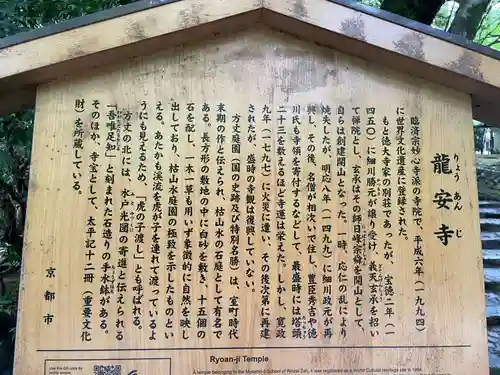 龍安寺
りょうあんじ
臨済宗妙心寺派の寺院で、平成六年(一九九四)
に世界文化遺産に登録された。
もと徳大寺家の別荘であったが、宝徳二年(一
四五〇)に細川勝元が譲り受け、義天玄承を招い
て禅院とし、玄承はその師日峰宗舜を開山として、
自らは創建開山となった。一時、応仁の乱により
焼失したが、明応八年(一四九九)に細川政元が再
興し、その後、名僧が相次いで住し、豊臣秀吉や徳
川氏も寺領を寄付するなどして、最盛時には塔頭
二十三を数えるほど寺運は栄えた。しかし、寛政
九年(一七九七)に火災に遭い、その後次第に再建
されたが、盛時の寺観は復興していない。
方丈庭園(国の史跡及び特別名勝)は、室町時代
末期の作と伝えられ、枯山水の石庭として有名で
ある。長方形の敷地の中に白砂を敷き、十五個の
石を配し、一木一草も用いず象徴的に自然を映し
出しており、枯山水庭園の極致を示したものとい
える。あたかも渓流を虎が子を連れて渡っているよ
うにも見えるため、「虎の子渡し」とも呼ばれる。
方丈の北には、水戸光圀の寄進と伝えられる
「吾唯足知」と刻まれた石造りの手水鉢がある。
そのほか、寺宝として、太平記十二冊(重要文化
財)を所蔵している。
京都市
Ryoan-ji Temple
A temple belonging to the Myoshin-ji School of Rinzai Zen, it was registered as a World Cultural Heritage site in 1994.